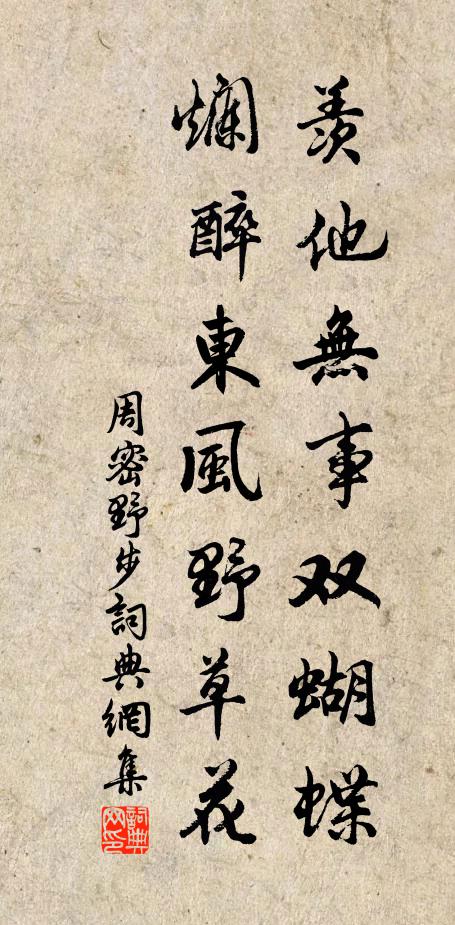 羨他無事双蝴蝶
爛醉東風野草花
周密野步詞典網集
詞典网印